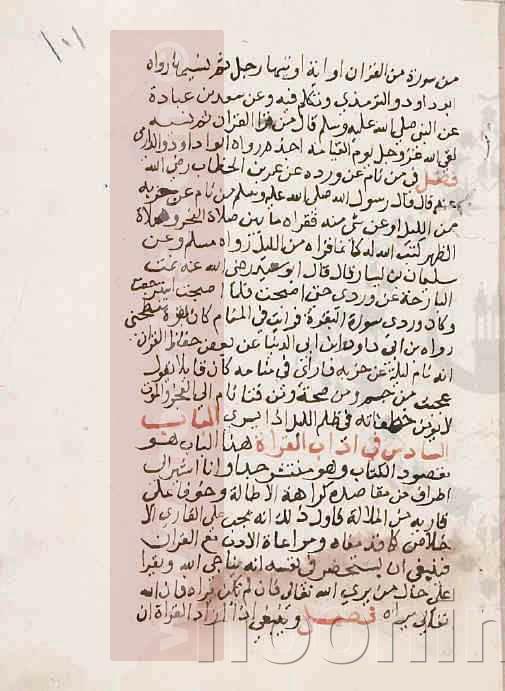 من سورة من القران او اية اوتيها رجل ثم نسيها رواه
ابو داود والترمذي وتكلم فيه وعن سعد بن عبادة
عن النبي صلى الله عليه وسلم قال من قرا القران ثم نسيه
لقي الله عز وجل يوم القيامه اجذم رواه ابو داود والدارمي
فصل في من نام عن ورده عن عمر بن الخطاب رضي الله
عنه قال قال رسول الله صلى الله عليه وسلم من نام عن حزبه
من الليل او عن شي منه فقراه ما بين صلاة الفجر وصلاة
الظهر كتب الله له كانما قراه من الليل رواه مسلم وعن
سليمان بن يسار قال قال ابو سعيد رضي الله عنه نمت
البارحة عن وردي حتى اصبحت فلما اصبحت استرجعت
وكان وردي سورة البقرة فرايت في المنام كان بقرة تنطحني
رواه بن ابي داود وابن ابي الدنيا عن بعض حفاظ القران
انه نام ليلة عن حزبه فاراي في منامه كان قايلا يقول
عجبت من جسم ومن صحة ومن فتا نام الى الفجر والموت
لا تومن خطفاته في ظلم الليل اذا يسري الباب
السادس في اداب القراة هذا الباب هو
مقصود الكتاب وهو منتشر جدا وانا اشير الى
اطراف من مقاصده كراهة الاطالة وخوفا على
قاريه من الملالة فاول ذلك انه يجب على القاري الا
خلاص كما قدمناه ومراعاة الادب مع القران
فينبغي ان يستحضر في نفسه انه يناجي الله ويقرا
على حال من يري الله تعالى فان لم يكن يراه فان الله
تعالى يراه فصل وينبغي اذا اراد القراة ان
noomin